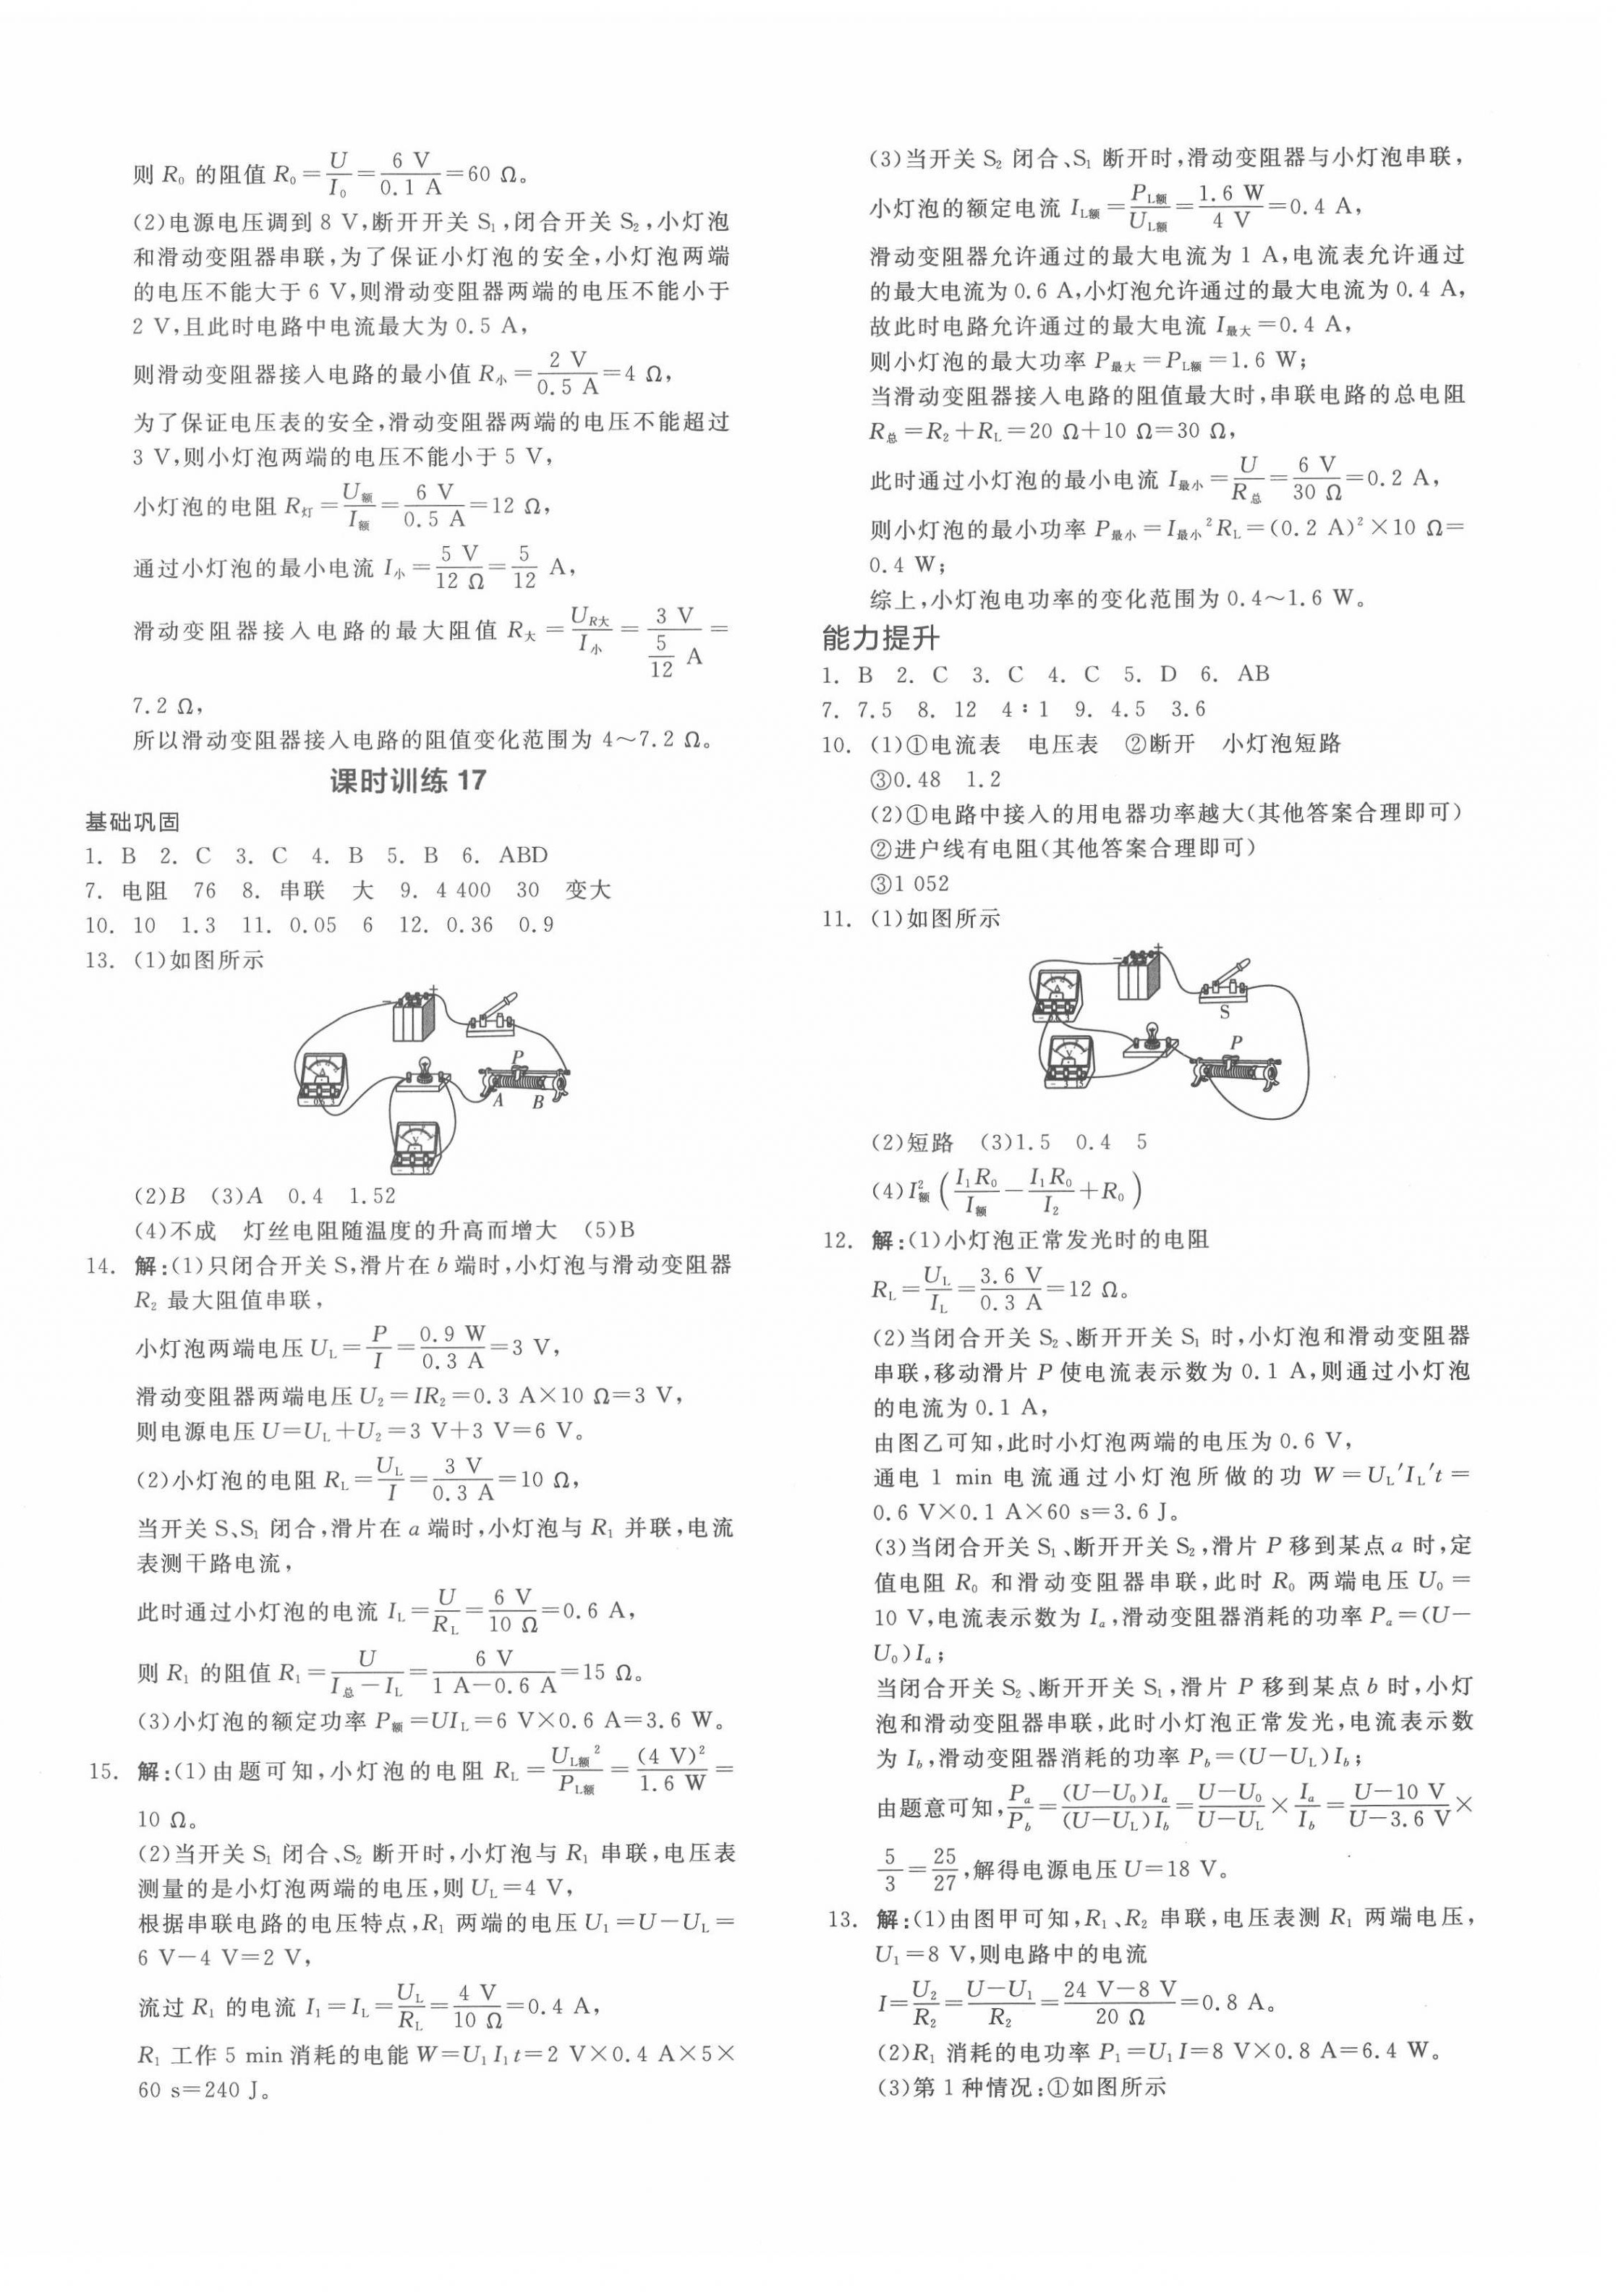 则 R₀ 的阻值 R₀=U/I₀=6 V/0.1 A=60 Ω。
(2)电源电压调到 8 V,断开开关 S₁,闭合开关 S₂,小灯泡
和滑动变阻器串联,为了保证小灯泡的安全,小灯泡两端
的电压不能大于 6 V,则滑动变阻器两端的电压不能小于
2 V,且此时电路中电流最大为 0.5 A,
则滑动变阻器接入电路的最小值 R小=2 V/0.5 A=4 Ω,
为了保证电压表的安全,滑动变阻器两端的电压不能超过
3 V,则小灯泡两端的电压不能小于 5 V,
小灯泡的电阻 R灯=U额/I额=6 V/0.5 A=12 Ω,
通过小灯泡的最小电流 I小=5 V/12 Ω=5/12 A,
滑动变阻器接入电路的最大阻值 R大=UR大/I小=3 V/(5/12 A)=
7.2 Ω,
所以滑动变阻器接入电路的阻值变化范围为 4～7.2 Ω。
课时训练 17
基础巩固
1. B 2. C 3. C 4. B 5. B 6. ABD
7. 电阻 76 8. 串联 大 9. 4 400 30 变大
10. 10 1.3 11. 0.05 6 12. 0.36 0.9
13. (1)如图所示
P
A B
(2)B (3)A 0.4 1.52
(4)不成 灯丝电阻随温度的升高而增大 (5)B
14. 解:(1)只闭合开关 S,滑片在 b 端时,小灯泡与滑动变阻器
R₂ 最大阻值串联,
小灯泡两端电压 U_L=P/I=0.9 W/0.3 A=3 V,
滑动变阻器两端电压 U₂=IR₂=0.3 A×10 Ω=3 V,
则电源电压 U=U_L+U₂=3 V+3 V=6 V。
(2)小灯泡的电阻 R_L=U_L/I=3 V/0.3 A=10 Ω,
当开关 S、S₁ 闭合,滑片在 a 端时,小灯泡与 R₁ 并联,电流
表测干路电流,
此时通过小灯泡的电流 I_L=U/R_L=6 V/10 Ω=0.6 A,
则 R₁ 的阻值 R₁=U/(I总-I_L)=6 V/(1 A-0.6 A)=15 Ω。
(3)小灯泡的额定功率 P额=UI_L=6 V×0.6 A=3.6 W。
15. 解:(1)由题可知,小灯泡的电阻 R_L=U_L额²/P_L额=(4 V)²/1.6 W=
10 Ω。
(2)当开关 S₁ 闭合、S₂ 断开时,小灯泡与 R₁ 串联,电压表
测量的是小灯泡两端的电压,则 U_L=4 V,
根据串联电路的电压特点,R₁ 两端的电压 U₁=U-U_L=
6 V-4 V=2 V,
流过 R₁ 的电流 I₁=I_L=U_L/R_L=4 V/10 Ω=0.4 A,
R₁ 工作 5 min 消耗的电能 W=U₁I₁t=2 V×0.4 A×5×
60 s=240 J。
(3)当开关 S₂ 闭合、S₁ 断开时,滑动变阻器与小灯泡串联,
小灯泡的额定电流 I_L额=P_L额/U_L额=1.6 W/4 V=0.4 A,
滑动变阻器允许通过的最大电流为 1 A,电流表允许通过
的最大电流为 0.6 A,小灯泡允许通过的最大电流为 0.4 A,
故此时电路允许通过的最大电流 I最大=0.4 A,
则小灯泡的最大功率 P最大=P_L额=1.6 W;
当滑动变阻器接入电路的阻值最大时,串联电路的总电阻
R总=R₂+R_L=20 Ω+10 Ω=30 Ω,
此时通过小灯泡的最小电流 I最小=U/R总=6 V/30 Ω=0.2 A,
则小灯泡的最小功率 P最小=I最小²R_L=(0.2 A)²×10 Ω=
0.4 W;
综上,小灯泡电功率的变化范围为 0.4～1.6 W。
能力提升
1. B 2. C 3. C 4. C 5. D 6. AB
7. 7.5 8. 12 4∶1 9. 4.5 3.6
10. (1)①电流表 电压表 ②断开 小灯泡短路
③0.48 1.2
(2)①电路中接入的用电器功率越大(其他答案合理即可)
②进户线有电阻(其他答案合理即可)
③1 052
11. (1)如图所示
S
P
(2)短路 (3)1.5 0.4 5
(4)I额²(I₁R₀/I额-I₁R₀/I₂+R₀)
12. 解:(1)小灯泡正常发光时的电阻
R_L=U_L/I_L=3.6 V/0.3 A=12 Ω。
(2)当闭合开关 S₂、断开开关 S₁ 时,小灯泡和滑动变阻器
串联,移动滑片 P 使电流表示数为 0.1 A,则通过小灯泡
的电流为 0.1 A,
由图乙可知,此时小灯泡两端的电压为 0.6 V,
通电 1 min 电流通过小灯泡所做的功 W=U_L′I_L′t=
0.6 V×0.1 A×60 s=3.6 J。
(3)当闭合开关 S₁、断开开关 S₂,滑片 P 移到某点 a 时,定
值电阻 R₀ 和滑动变阻器串联,此时 R₀ 两端电压 U₀=
10 V,电流表示数为 Iₐ,滑动变阻器消耗的功率 Pₐ=(U-
U₀)Iₐ;
当闭合开关 S₂、断开开关 S₁,滑片 P 移到某点 b 时,小灯
泡和滑动变阻器串联,此时小灯泡正常发光,电流表示数
为 I_b,滑动变阻器消耗的功率 P_b=(U-U_L)I_b;
由题意可知,Pₐ/P_b=(U-U₀)Iₐ/(U-U_L)I_b=(U-U₀)/(U-U_L)×Iₐ/I_b=(U-10 V)/(U-3.6 V)×
5/3=25/27,解得电源电压 U=18 V。
13. 解:(1)由图甲可知,R₁、R₂ 串联,电压表测 R₁ 两端电压,
U₁=8 V,则电路中的电流
I=U₂/R₂=(U-U₁)/R₂=(24 V-8 V)/20 Ω=0.8 A。
(2)R₁ 消耗的电功率 P₁=U₁I=8 V×0.8 A=6.4 W。
(3)第 1 种情况:①如图所示